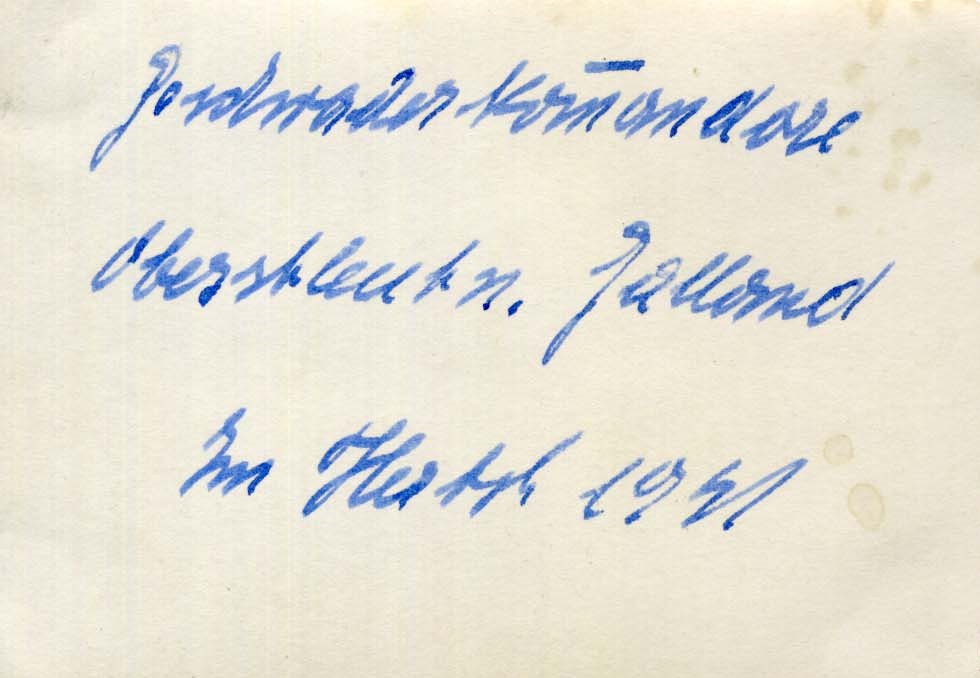 Geschwader Kom̄andore
Oberstleutn. Galland
Im Herbst 1941